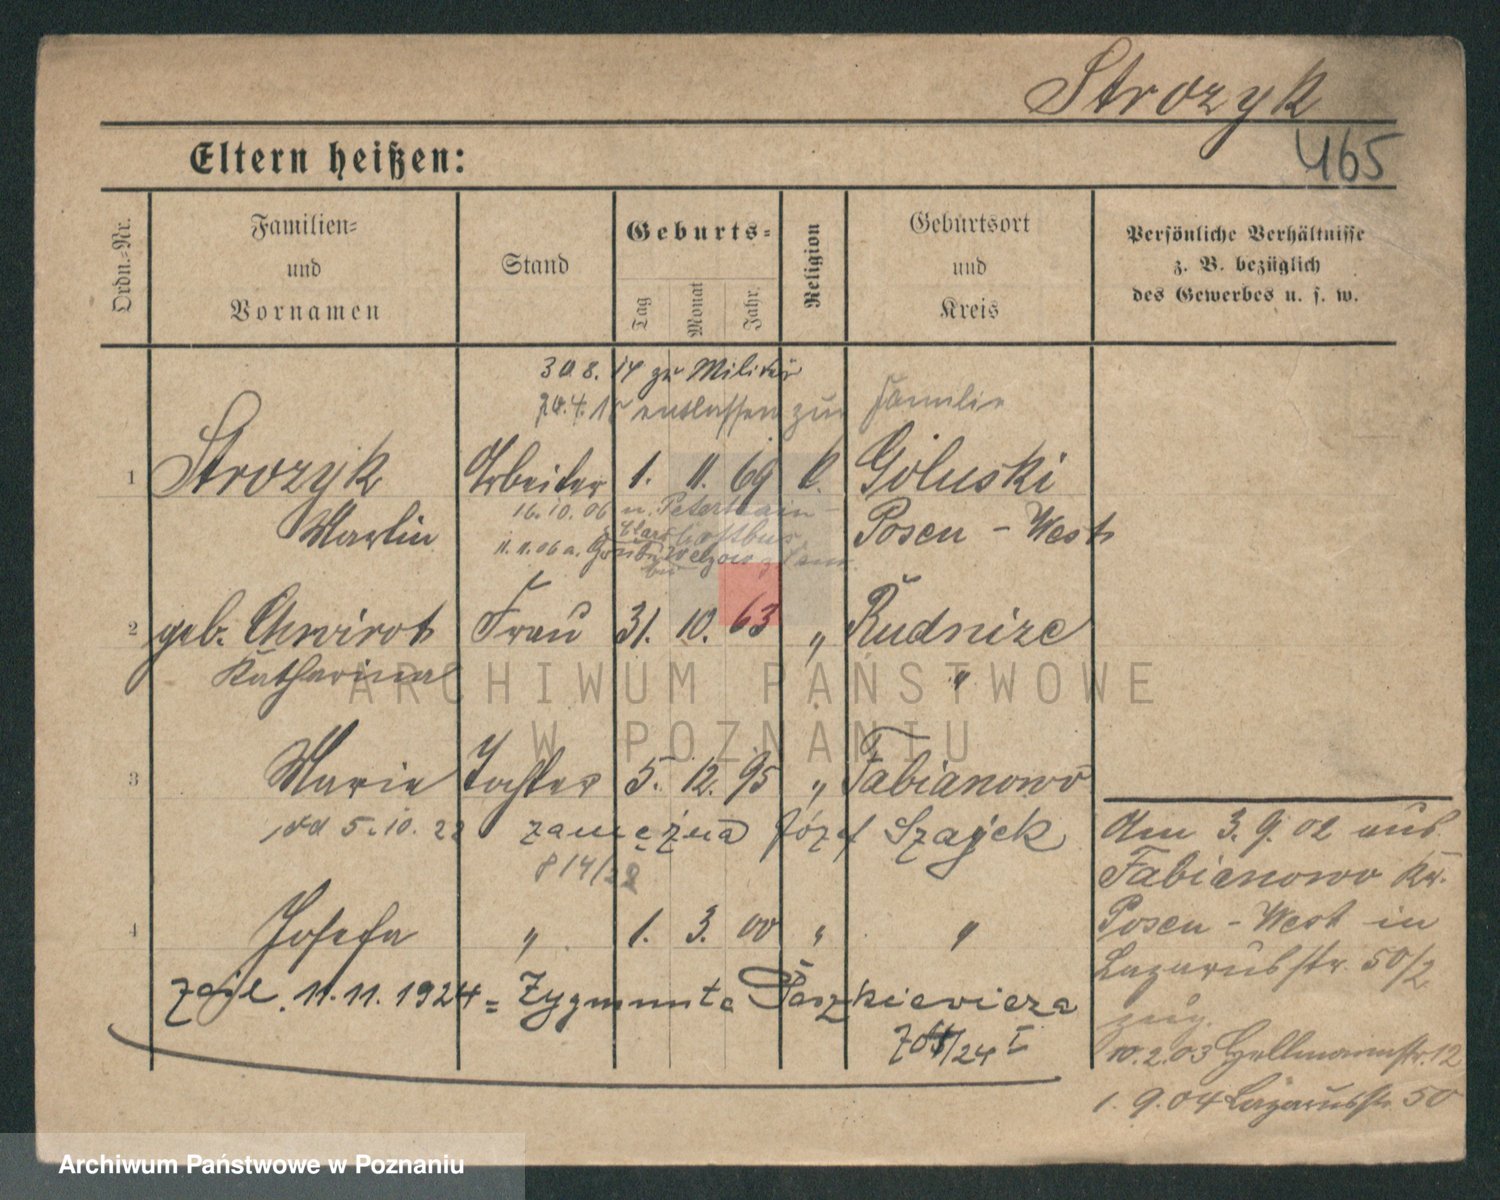 Strozyk
465
Eltern heißen:
Ordn.-Nr.
Familien-
und
Vornamen
Stand
Geburts-
Tag
Monat
Jahr.
Religion
Geburtsort
und
Kreis
Persönliche Verhältnisse
z. B. bezüglich
des Gewerbes u. s. w.
30.8.14 zu Militär
entlassen zur Familie
1 Strozyk Arbeiter 1. 11. 69 k. Goluski
16.10.06 n.
Martin Posen - West
11.11.06 a.
2 geb. Chwirot Frau 31. 10. 63 " Rudnize
Katharina "
3 Marie Tochter 5. 12. 95 " Fabianowo
od 5.10.22 zamężna Józef Szajek
814/28
4 Josefa " 1. 3. 00 " "
11.11.1924 = Zygmunta Paszkiewicza
/24 I
Am 3.9.02 aus
Fabianowo Kr.
Posen - West in
Lazarusstr. 50/2
zug.
10.2.03 Hellmannstr. 12
1.9.04 Lazarusstr 50
ARCHIWUM PAŃSTWOWE
W POZNANIU
Archiwum Państwowe w Poznaniu